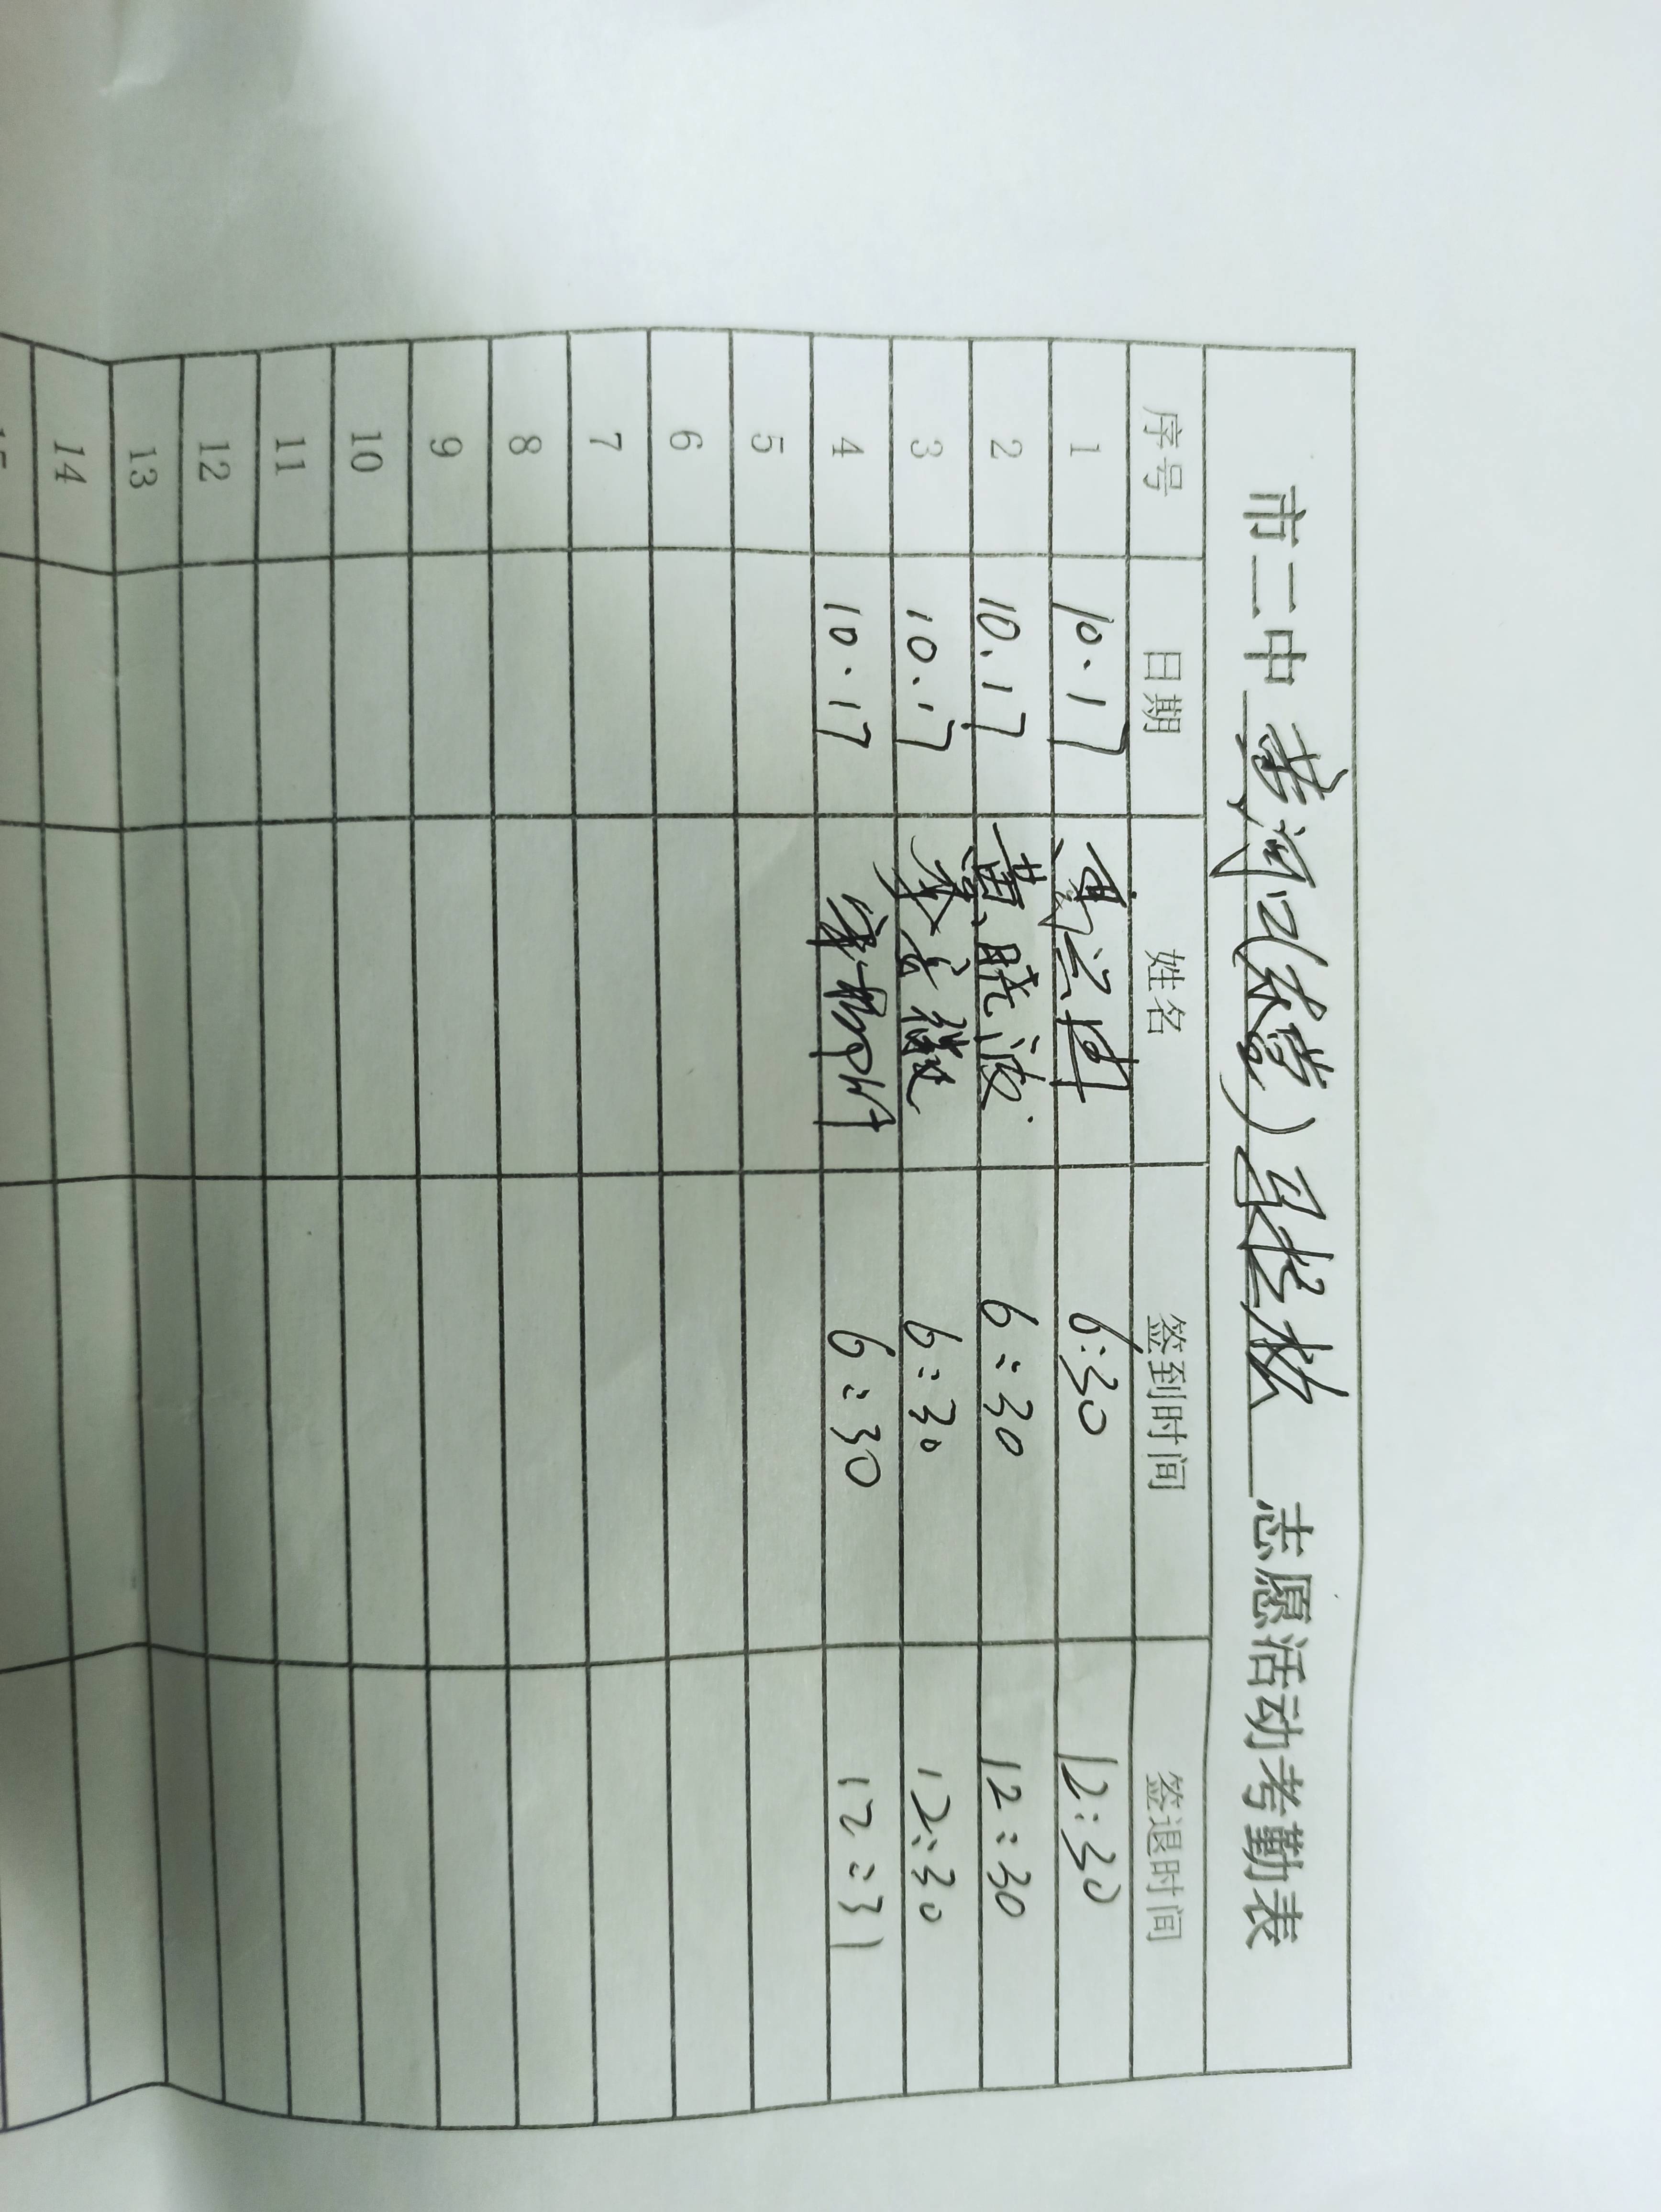 市二中 黄河口(东营)马拉松 志愿活动考勤表
序号 日期 姓名 签到时间 签退时间
1 10.17 6:30 12:30
2 10.17 黄晓波 6:30 12:30
3 10.17 6:30 12:30
4 10.17 6:30 12:31
5
6
7
8
9
10
11
12
13
14